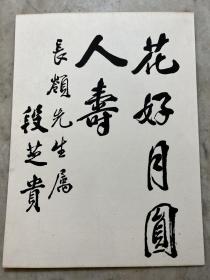 花好月圓
人壽
長領先生屬
段芝貴